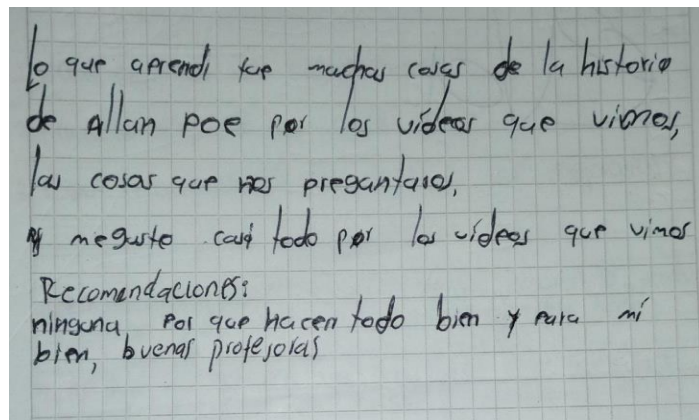 lo que aprendi fue muchas cosas de la historia
de Allan Poe por los videos que vimos,
las cosas que nos preguntaros,
y me gusto casi todo por los videos que vimos
Recomendaciones:
ninguna, por que hacen todo bien y para mí
bien, buenas profesoras